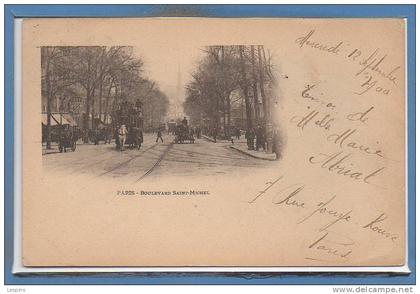 Mercredi 12 Septembre
1900
Envoi de
Mlle Marie
Abrial
7 Rue Rouve
Paris
PARIS - BOULEVARD SAINT-MICHEL
www.delcampe.net